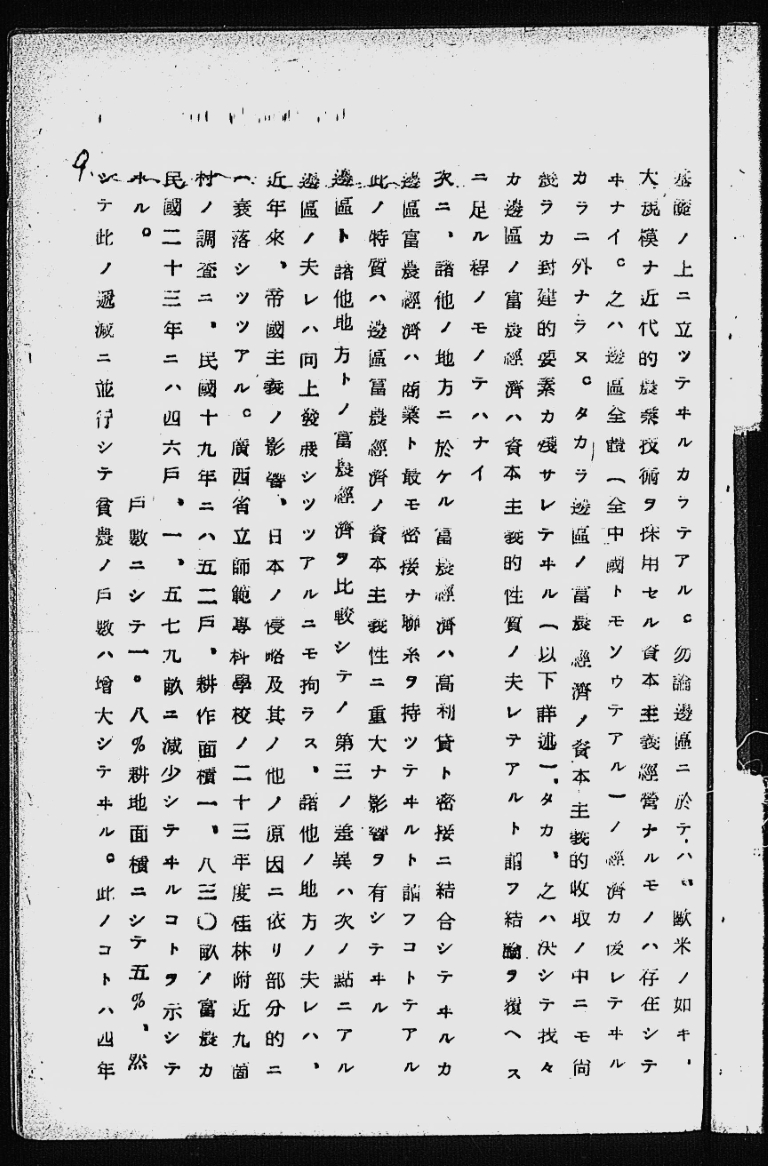 基礎ノ上ニ立ツテヰルカラテアル。勿論邊區ニ於テハ、歐米ノ如キ、
大規模ナ近代的農業技術ヲ採用セル資本主義經營ナルモノハ存在シテ
ヰナイ。之ハ邊區全體(全中國トモソウテアル)ノ經濟カ後レテヰル
カラニ外ナラヌ。タカラ邊區ノ富農經濟ノ資本主義的收取ノ中ニモ尙
幾ラカ封建的要素カ殘サレテヰル(以下詳述)、タカ、之ハ決シテ我々
カ邊區ノ富農經濟ハ資本主義的性質ノ夫レテアルト謂フ結論ヲ覆ヘス
ニ足ル程ノモノテハナイ
次ニ、諸他ノ地方ニ於ケル富農經濟ハ高利貸ト密接ニ結合シテヰルカ
邊區富農經濟ハ商業ト最モ密接ナ聯系ヲ持ツテヰルト謂フコトテアル
此ノ特質ハ邊區富農經濟ノ資本主義性ニ重大ナ影響ヲ有シテヰル
邊區ト諸他地方トノ富農經濟ヲ比較シテノ第三ノ差異ハ次ノ點ニアル
邊區ノ夫レハ向上發展シツツアルニモ拘ラス、諸他ノ地方ノ夫レハ、
近年來、帝國主義ノ影響、日本ノ侵略及其ノ他ノ原因ニ依リ部分的ニ
一衰落シツツアル。廣西省立師範專科學校ノ二十三年度桂林附近九箇
村ノ調査ニ、民國十九年ニハ五二戶、耕作面積一、八三〇畝ノ富農カ
民國二十三年ニハ四六戶、一、五七九畝ニ減少シテヰルコトヲ示シテ
ヰル。戶數ニシテ一。八%耕地面積ニシテ五%、然
シテ此ノ遞減ニ並行シテ貧農ノ戶數ハ增大シテヰル。此ノコトハ四年
9.